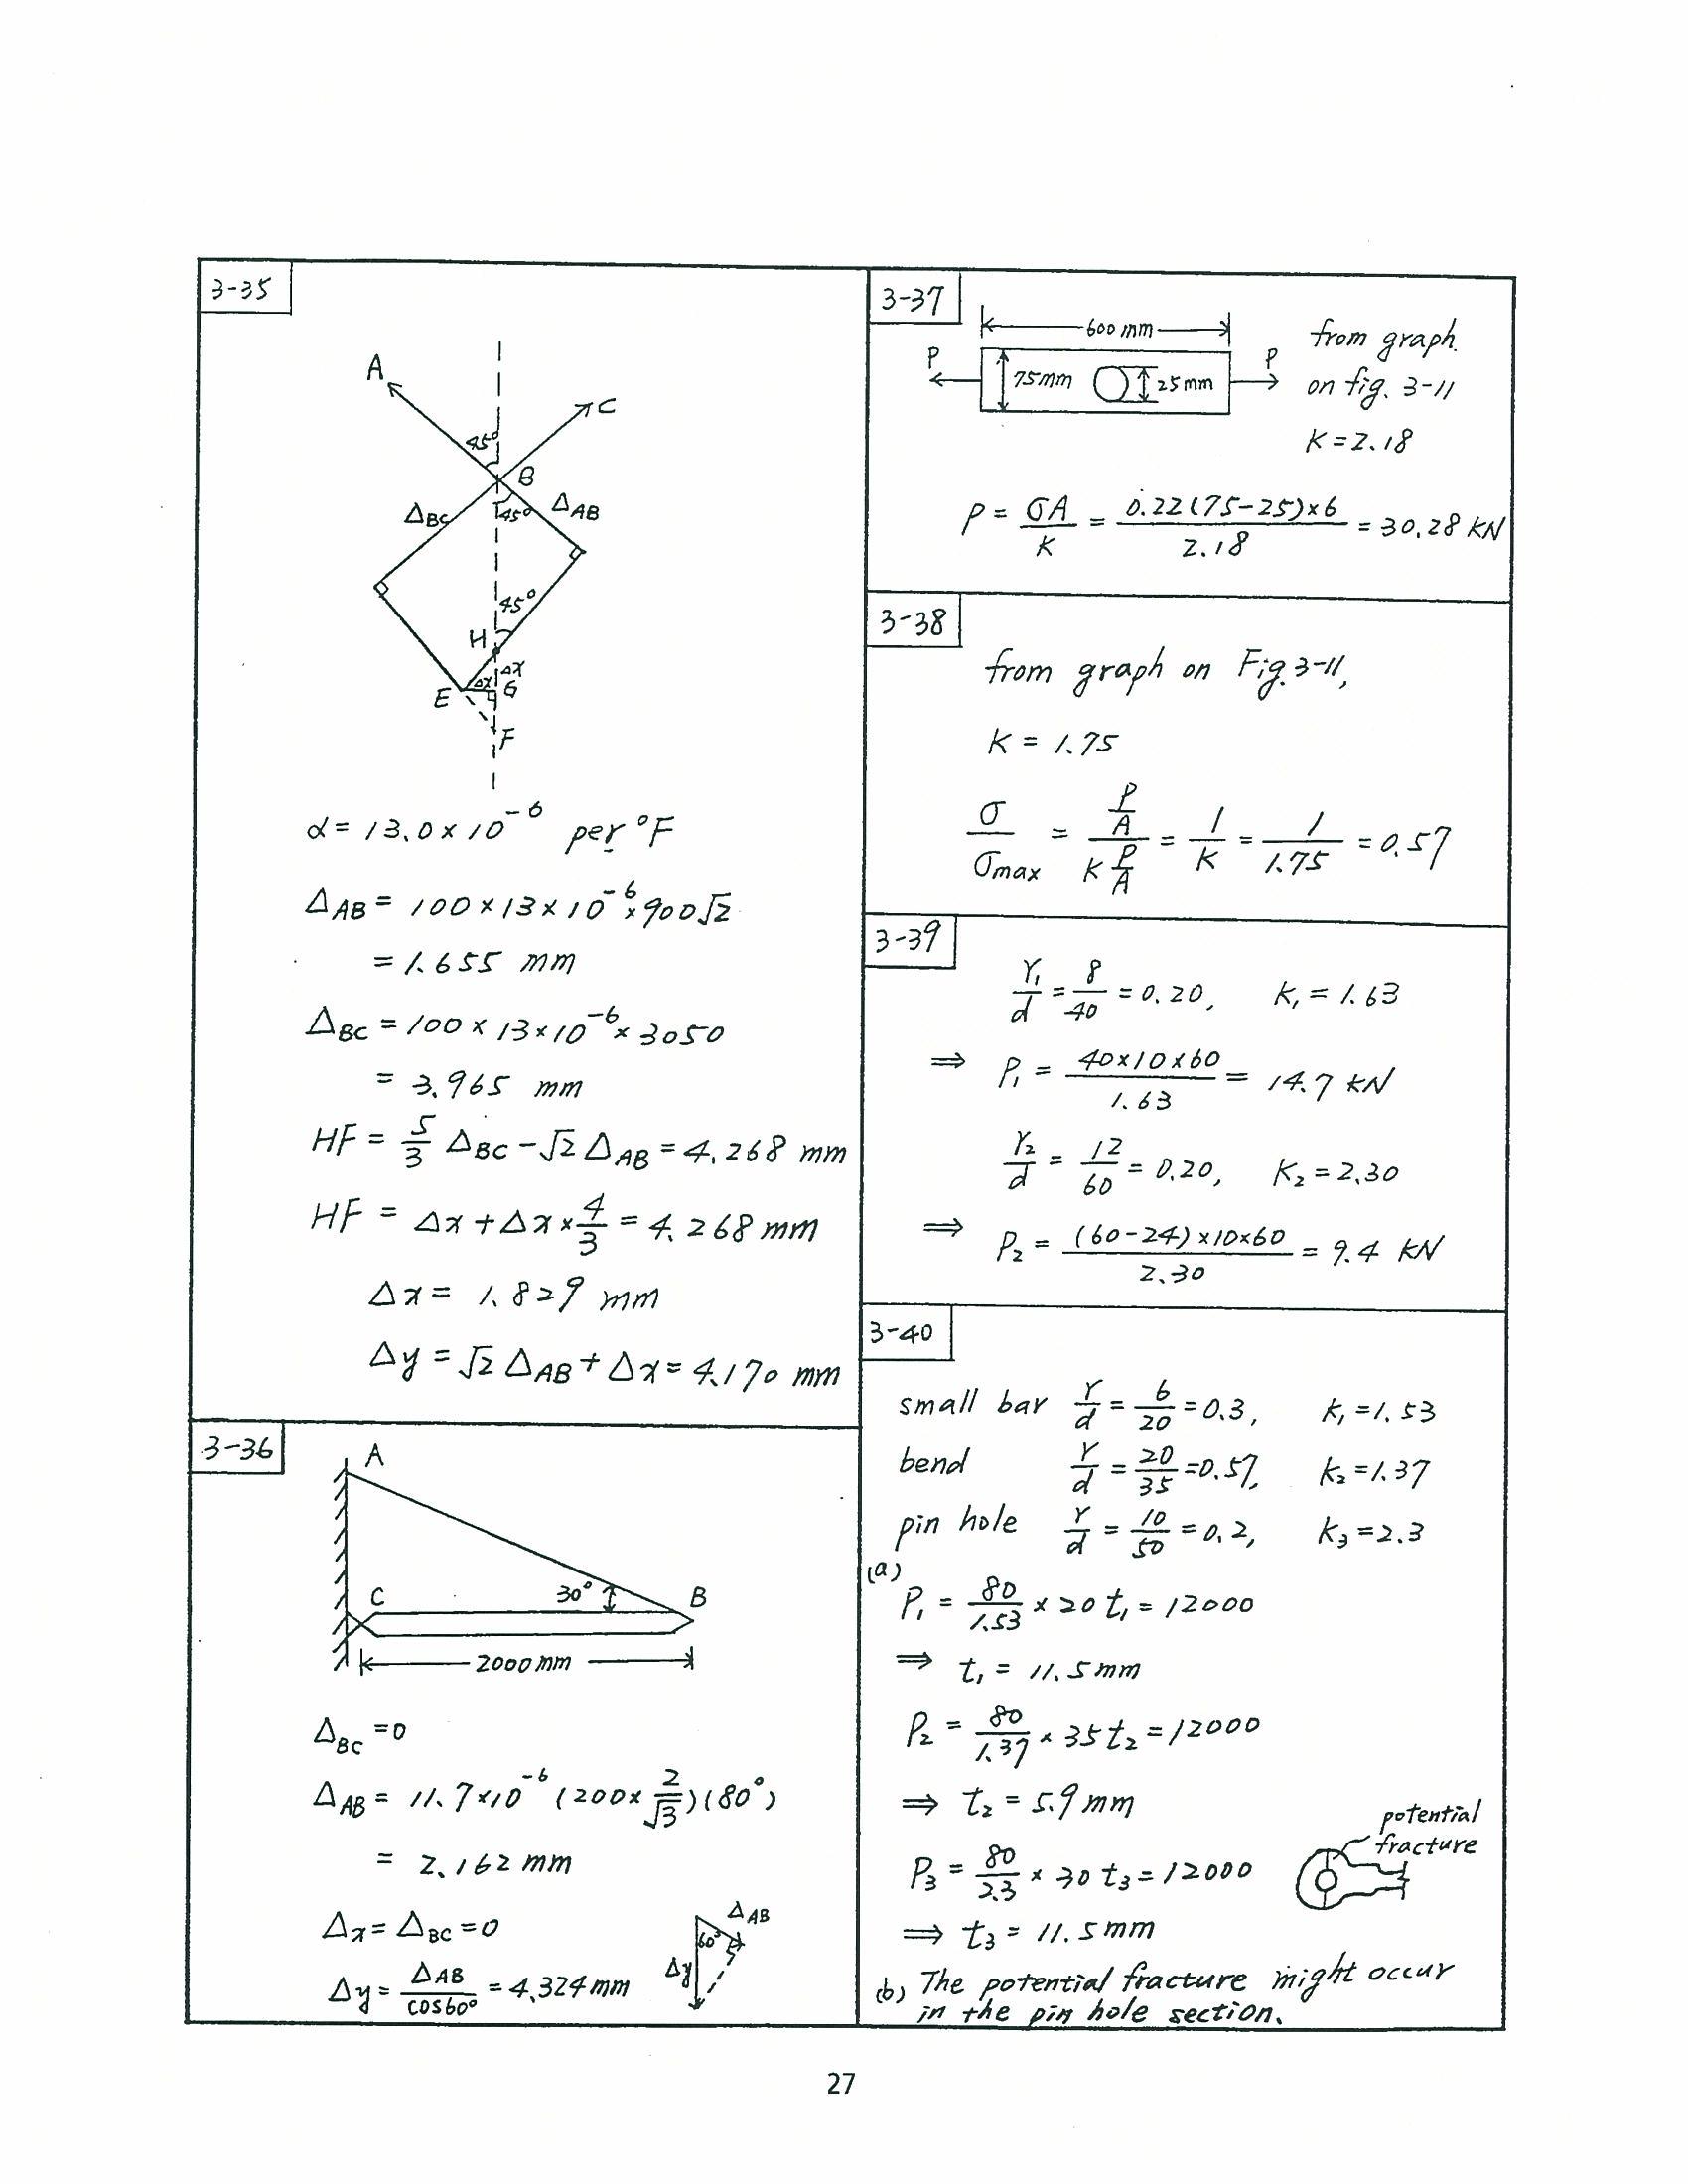 3-35
A
C
45°
B
Δ_BC
45°
Δ_AB
45°
H
Δx
Δx
G
E
F
α = 13.0 × 10⁻⁶ per °F
Δ_AB = 100 × 13 × 10⁻⁶ × 900√2
= 1.655 mm
Δ_BC = 100 × 13 × 10⁻⁶ × 3050
= 3.965 mm
HF = 5/3 Δ_BC − √2 Δ_AB = 4.268 mm
HF = Δx + Δx × 4/3 = 4.268 mm
Δx = 1.829 mm
Δy = √2 Δ_AB + Δx = 4.170 mm
3-36
A
C
30°
B
2000 mm
Δ_BC = 0
Δ_AB = 11.7 × 10⁻⁶ (200 × 2/√3)(80°)
= 2.162 mm
Δx = Δ_BC = 0
Δy = Δ_AB / cos60° = 4.324 mm
Δ_AB
60°
Δy
3-37
600 mm
P
75mm
25mm
P
from graph
on fig. 3-11
K = 2.18
P = σA / K = 0.22(75−25)×6 / 2.18 = 30.28 KN
3-38
from graph on Fig. 3-11,
K = 1.75
σ / σ_max = (P/A) / (K P/A) = 1/K = 1/1.75 = 0.57
3-39
r₁/d = 8/40 = 0.20, K₁ = 1.63
⇒ P₁ = 40×10×60 / 1.63 = 14.7 kN
r₂/d = 12/60 = 0.20, K₂ = 2.30
⇒ P₂ = (60−24)×10×60 / 2.30 = 9.4 KN
3-40
small bar r/d = 6/20 = 0.3, K₁ = 1.53
bend r/d = 20/35 = 0.57, K₂ = 1.37
pin hole r/d = 10/50 = 0.2, K₃ = 2.3
(a)
P₁ = 80/1.53 × 20 t₁ = 12000
⇒ t₁ = 11.5 mm
P₂ = 80/1.37 × 35 t₂ = 12000
⇒ t₂ = 5.9 mm
potential
fracture
P₃ = 80/2.3 × 30 t₃ = 12000
⇒ t₃ = 11.5 mm
(b) The potential fracture might occur
in the pin hole section.
27